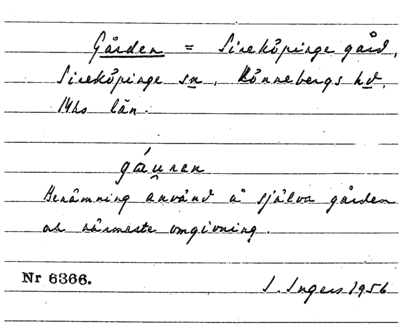 Gården = Sireköpinge gård,
Sireköpinge sn, Rönnebergs hd,
Mhs län.
gáu̯ren
Benämning använd å själva gården
och närmaste omgivning.
Nr 6366.
I. Ingers 1956